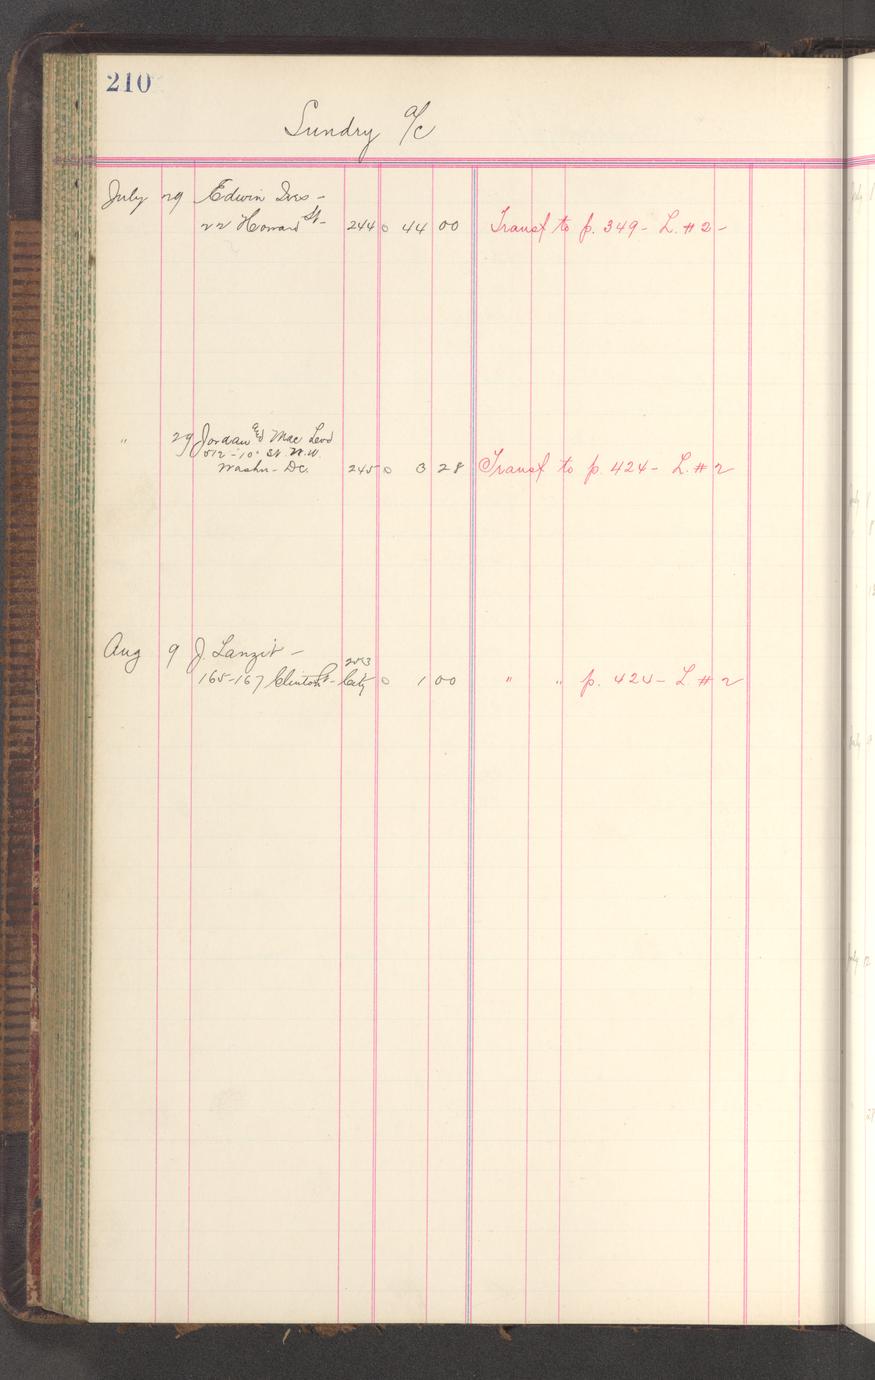 210
Sundry a/c
July 29 Edwin Ives -
22 Howard St- 244 0 44 00 Transf to p. 349 - L. # 2 -
" 29 Jordan and Mac Leod
512 - 10" St. N.W.
Washn - DC. 245 0 3 28 Transf to p. 424 - L. # 2
Aug 9 J. Lanzit -
253
165-167 Clinton St - City 0 1 00 " " p. 424 - L. # 2